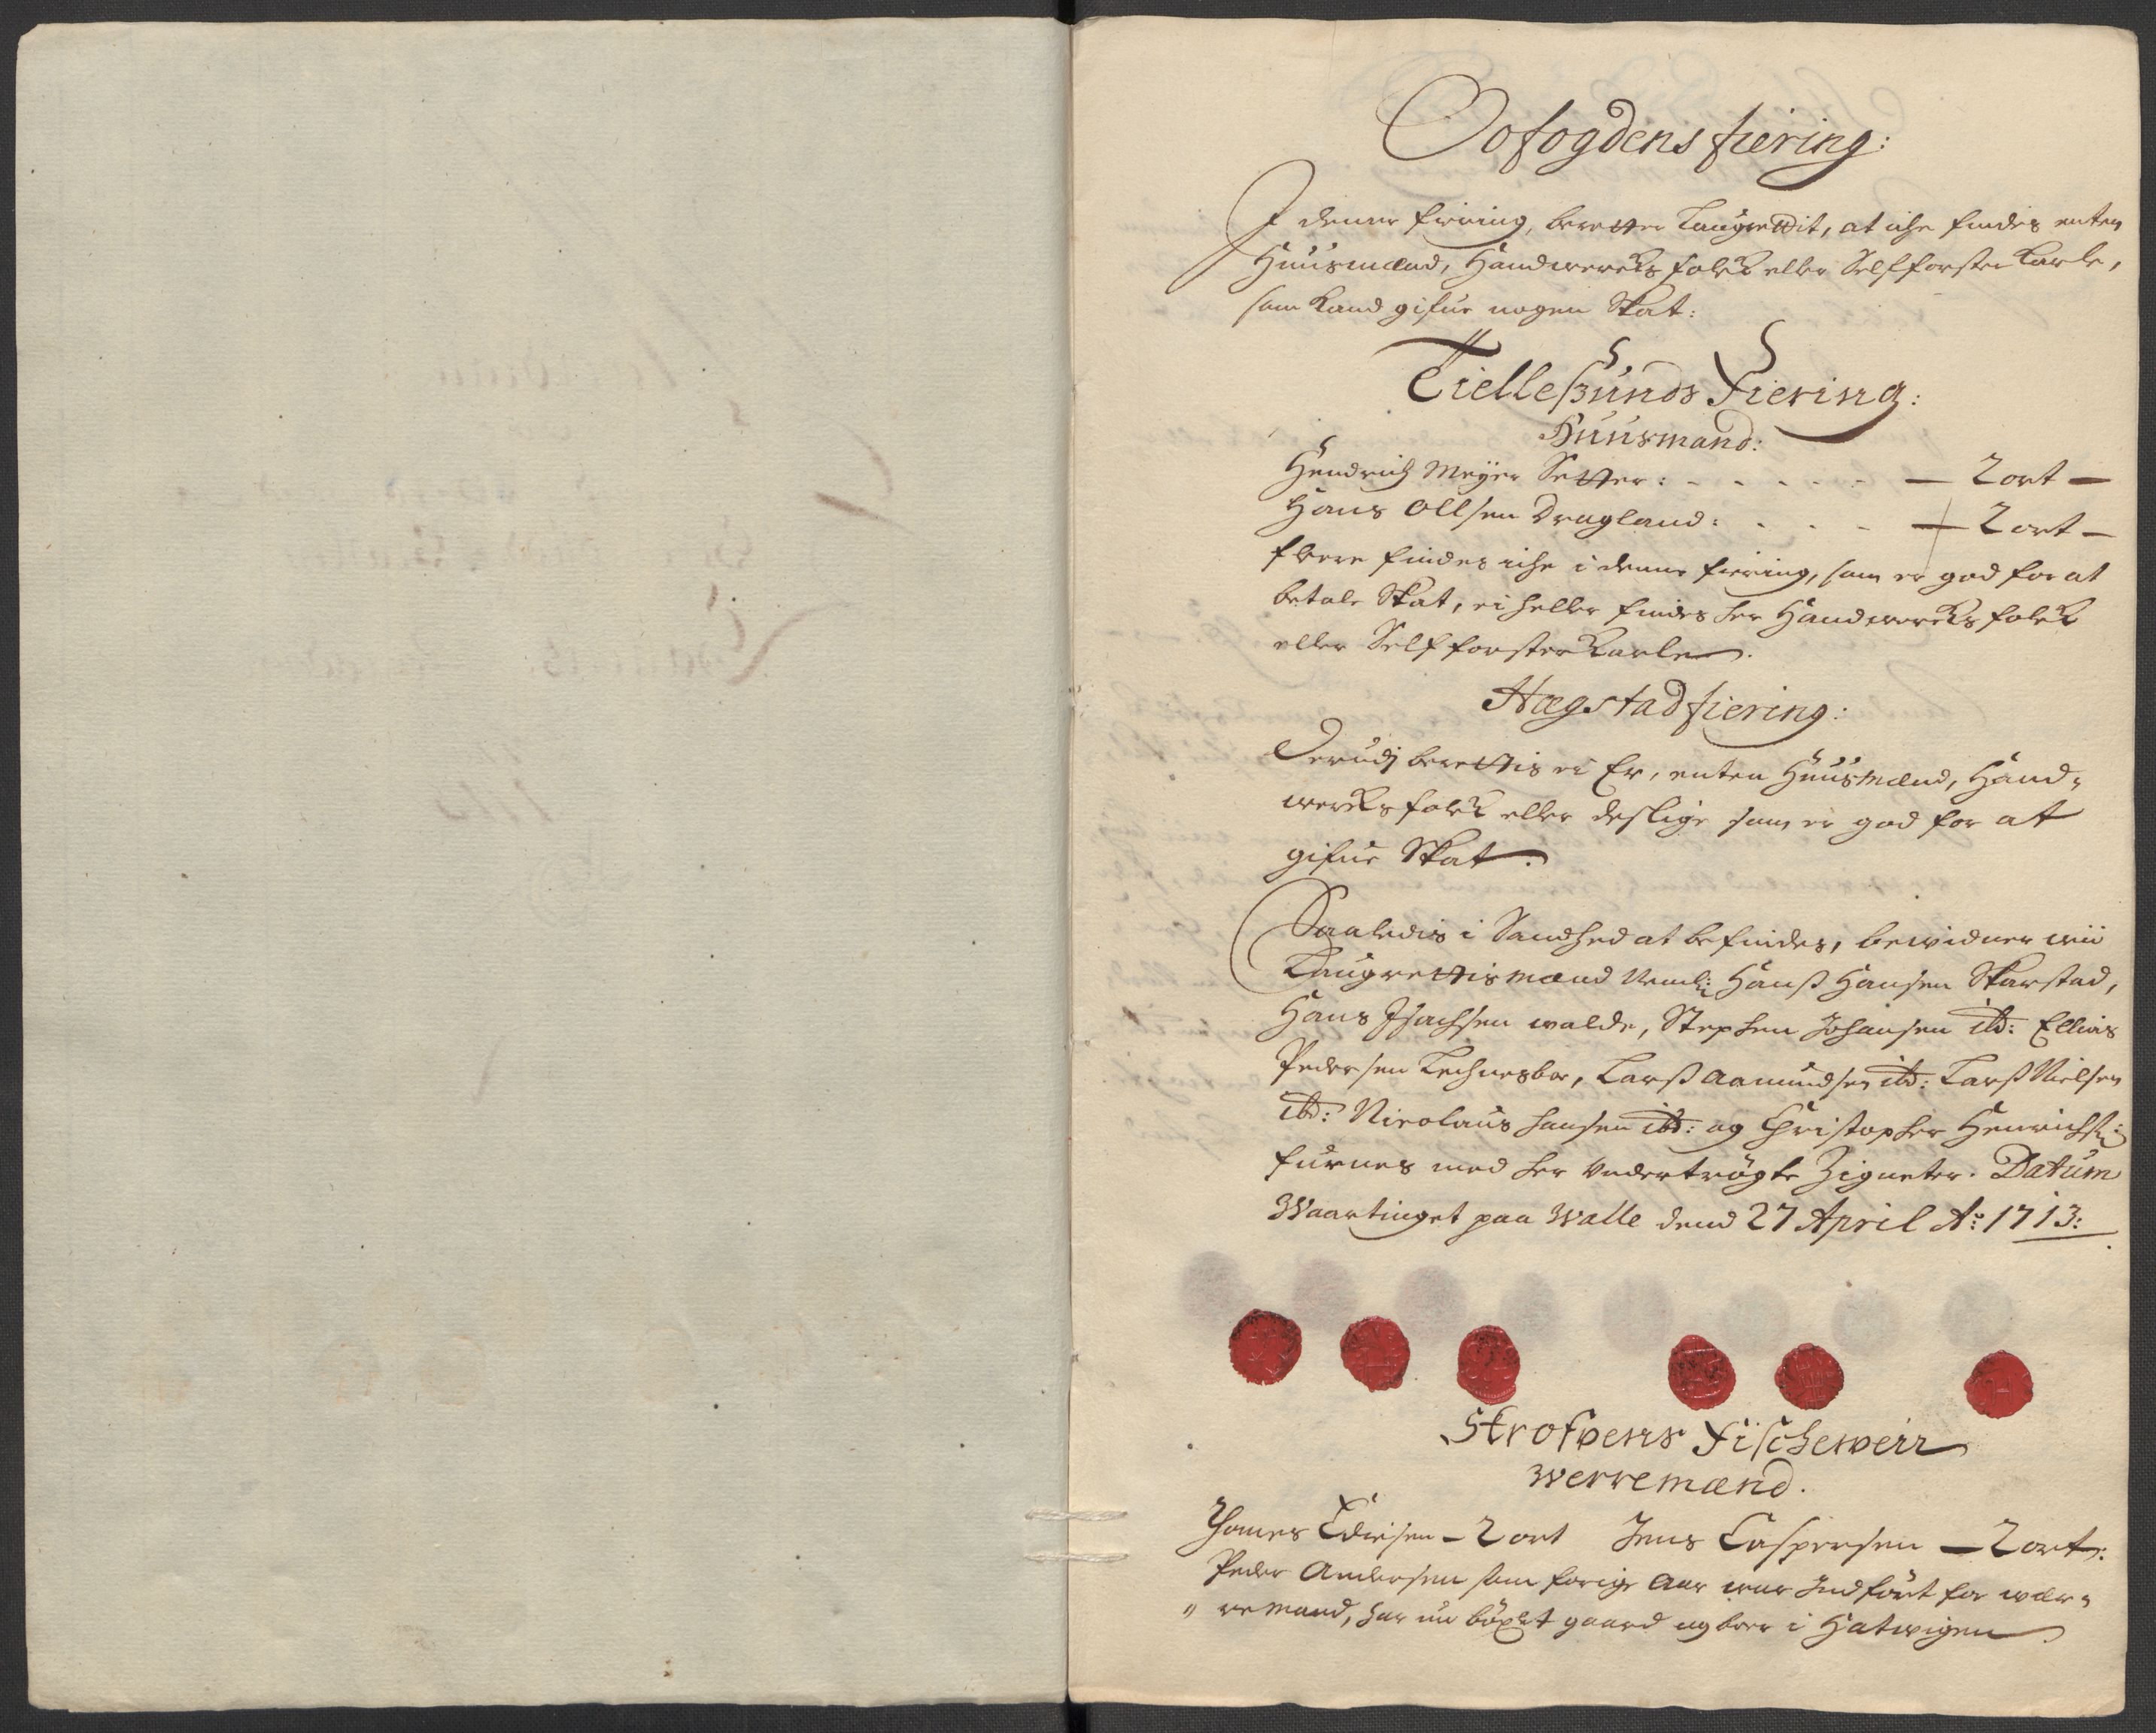 Oofogdens fiering:
I denne fiering, beretter Laugrettit, at iche findes enten
Huusmænd, Handwercks folck eller Selffoster Karle,
som kand gifue nogen Skat:
Tiellesunds Fiering:
Huusmænd:
Hendrich Meyer Setter: - - - - - - 2 ort -
Hans Ollsen Dragland: - - - - 2 ort -
flere findes iche i denne fiering, som er god for at
betale Skat, ei heller findes her Handwercks folck
eller Selffoster Karle.
Hægstad fiering:
Derudj berettis ei Er, enten Huusmænd, Hand-
wercksfolck eller deslige som er god for at
gifue Skat.
Saaledis i Sandhed at befindes, bewidner wii
Laugrettismænd Neml: Hanss Hansen Skarstad,
Hans Isachsen walde, Stephen Johansen ibd: Ellias
Pedersen Lechnesboe, Larss Aamundsen ibd: Larss Nielsen
ibd: Nicolaus hansen ibd: og Christopher Henrichs:
furnes med her undertrögte Zigneter. Datum
Waartinget paa Walle dend 27 April Ao: 1713:
Strofwens Fischeweir
werremænd.
Thomes Edisen - 2 ort Jens Caspersen - 2 ort:
Peder Andersen som forige Aar war Indfört for wær-
" remand, har nu böxlet gaard og boer i Hatwigen